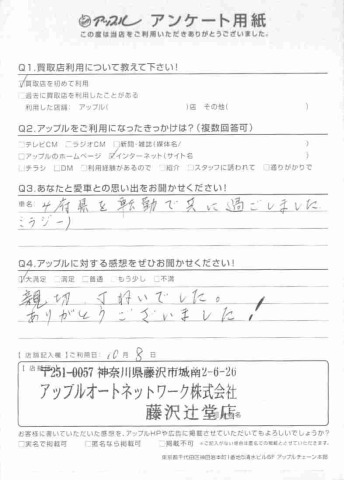 アップル アンケート用紙
この度は当店をご利用いただきありがとうございました。
Q1.買取店利用について教えて下さい!
☑買取店を初めて利用
□過去に買取店を利用したことがある
利用した店舗: アップル( )店 その他( )
Q2.アップルをご利用になったきっかけは?(複数回答可)
□テレビCM □ラジオCM □新聞・雑誌(媒体名 )
□アップルのホームページ ☑インターネット(サイト名 )
□チラシ □DM □利用経験があるので □紹介 □スタッフに誘われて □通りがかりで
Q3.あなたと愛車との思い出をお聞かせください!
車名:
4府県を転勤で共に過ごしました
ミラジーノ
Q4.アップルに対する感想をぜひお聞かせください!
☑大満足 □満足 □普通 □もう少し □不満
親切 ていねいでした。
ありがとうございました!
【店舗記入欄】ご利用日: 10月 8日
〒251-0057 神奈川県藤沢市城南2-6-26
アップルオートネットワーク株式会社
藤沢辻堂店
お客様に書いていただいた感想を、アップルHPや広告に掲載させていただいてもよろしいでしょうか?
□実名で掲載可 □匿名なら掲載可 □掲載不可